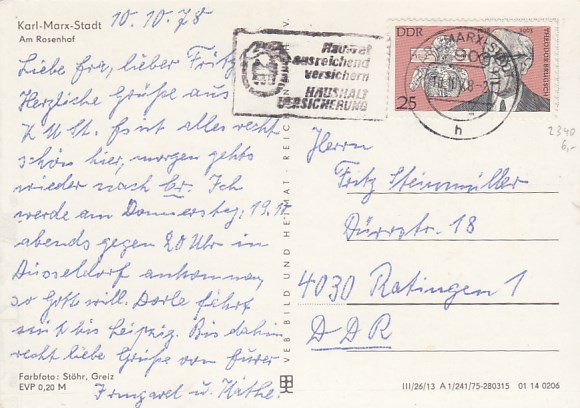 Karl-Marx-Stadt
Am Rosenhof
10.10.78
Liebe Ira, lieber Fritz
Herzliche Grüße aus
K.M.St. Es ist alles recht
schön hier, morgen gehts
wieder nach Gr. Ich
werde am Donnerstag, 19.10
abends gegen 20 Uhr in
Düsseldorf ankommen,
so Gott will. Dorle fährt
mit bis Leipzig. Bis dahin
recht liebe Grüße von Eurer
Irmgard u. Käthe.
Farbfoto: Stöhr, Greiz
EVP 0,20 M
VEB BILD UND HEIMAT · REICHENBACH I. V.
Hausrat
ausreichend
versichern
HAUSHALT
VERSICHERUNG
DDR
25
THEODOR BRUGSCH
h
2340
6,-
Herrn
Fritz Steinmüller
Dürrstr. 18
4030 Ratingen 1
DDR
III/26/13 A 1/241/75-280315 01 14 0206